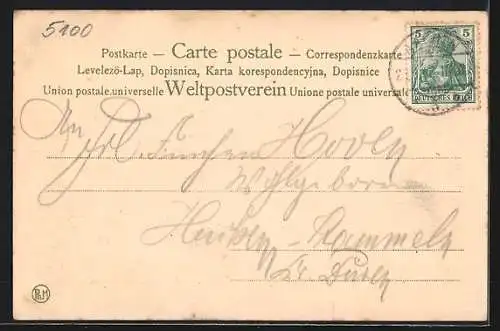 5100
Postkarte — Carte postale — Correspondenzkarte
Levelező-Lap, Dopisnica, Karta korespondencyjna, Dopisnice
Union postale universelle Weltpostverein Unione postale universale
5 5
DEUTSCHES REICH
An
Frl. Hoven
Wohlgeboren
Stammeln
Kr. Düren